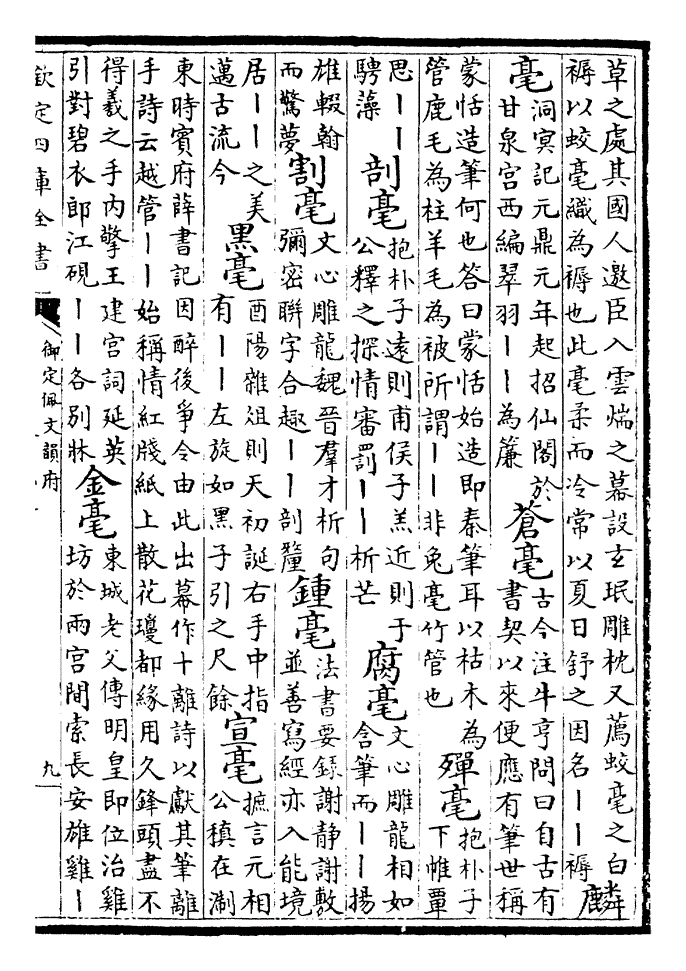 草之處其國人邀臣入雲煓之幕設玄珉雕枕又薦蛟毫之白
褥以蛟毫織為褥也此毫柔而冷常以夏日舒之因名丨丨褥
麟
毫
洞冥記元鼎元年起招仙閣於
甘泉宮西編翠羽丨丨為簾
蒼毫
古今注牛亨問曰自古有
書契以來便應有筆世稱
蒙恬造筆何也答曰蒙恬始造即秦筆耳以枯木為
管鹿毛為柱羊毛為被所謂丨丨非兔毫竹管也
殫毫
抱朴子
下帷覃
思丨丨
騁藻
剖毫
抱朴子遠則甫侯子羔近則于
公釋之探情審罰丨丨析芒
腐毫
文心雕龍相如
含筆而丨丨揚
雄輟翰
而驚夢
割毫
文心雕龍魏晉羣才析句
彌密聯字合趣丨丨剖釐
鍾毫
法書要錄謝静謝敷
並善寫經亦入能境
居丨丨之美
邁古流今
黑毫
酉陽雜俎則天初誕右手中指
有丨丨左旋如黑子引之尺餘
宣毫
摭言元相
公稹在淛
東時賓府薛書記因醉後爭令由此出幕作十離詩以獻其筆離
手詩云越管丨丨始稱情紅牋紙上散花瓊都緣用久鋒頭盡不
得羲之手內擎王建宮詞延英
引對碧衣郎江硯丨丨各別牀
金毫
東城老父傳明皇即位治雞
坊於兩宮間索長安雄雞丨
欽定四庫全書
御定佩文韻府
九